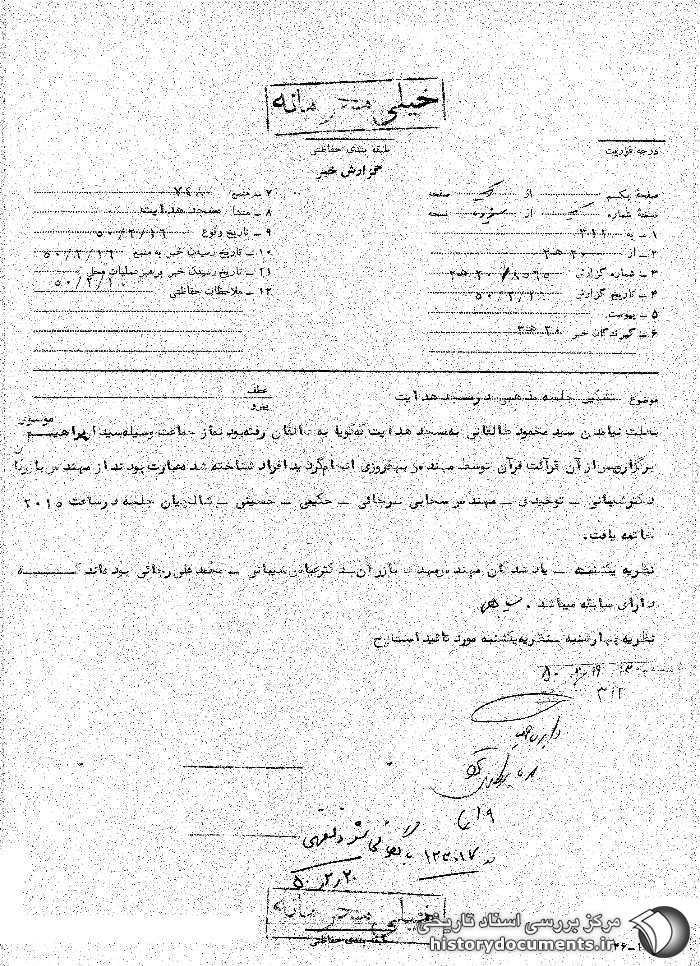 خیلی محرمانه
طبقه بندی حفاظتی
گزارش خبر
درجه فوریت
صفحه یکم از یک صفحه
نسخه شماره یک از نسخه
۱ ـ به ۳۱۲
۲ ـ از ۲۰ هـ ۳
۳ ـ شماره گزارش
۴ ـ تاریخ گزارش
۵ ـ پیوست
۶ ـ گیرندگان خبر ۲۰ هـ ۳
۷ ـ منبع
۸ ـ منشا مسجد هدایت
۹ ـ تاریخ وقوع ۵۰/۲/۱۶
۱۰ ـ تاریخ رسیدن خبر به منبع ۵۰/۲/۱۶
۱۱ ـ تاریخ رسیدن خبر برهبر عملیات محل
۱۲ ـ ملاحظات حفاظتی
موضوع تشکیل جلسه مذهبی در مسجد هدایت
عطف
پیرو
بعلت نیامدن سید محمود طالقانی به مسجد هدایت که گویا به طالقان رفته بود نماز جماعت بوسیله سید ابراهیم موسوی
برگزار پس از آن قرائت قرآن توسط مهندس بهفروزی انجام گردید افراد شناخته شده عبارت بودند از مهندس بازرگان
دکتر شیبانی ـ توحیدی ـ مهندس سحابی ـ رجائی ـ حکیمی ـ حسینی ـ شالچیان جلسه در ساعت ۲۰۱۵
خاتمه یافت.
نظریه یکشنبه ـ یادشدگان مهندس مهدی بازرگان ـ دکتر عباس شیبانی ـ محمدعلی رجائی بوده اند که
دارای سابقه میباشند.
نظریه چهارشنبه ـ نظریه یکشنبه مورد تائید است. خ
۳۱۲
۱۲۵۰۱۷ بایگانی شود
۵۰/۲/۲۰
خیلی محرمانه
طبقه بندی حفاظتی
مرکز بررسی اسناد تاریخی
historydocuments.ir